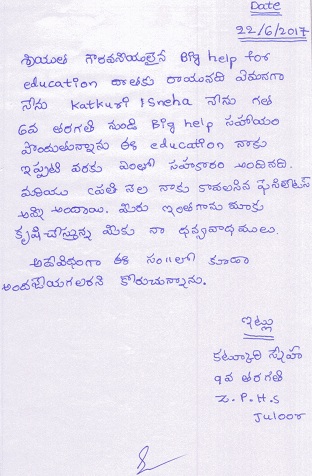 Date
22/6/2017
శ్రీయుత గౌరవనీయులైన Big help for
education దాతకు రాయునది ఏమనగా
నేను Katkuri Sneha నేను గత
6వ తరగతి నుండి Big help సహాయం
పొందుతున్నాను ఈ education నాకు
ఇప్పటి వరకు ఎంతో సహకారం అందినది.
మరియు ప్రతి నెల నాకు కావలసిన
అన్ని అందాయి. మీరు ఇంతగాను మాకు
కృషి చేస్తున్న మీకు నా ధన్యవాధములు.
అదేవిధంగా ఈ సం॥లో కూడా
అందజేయగలరని కోరుచున్నాను.
ఇట్లు
కట్కూరి స్నేహ
9వ తరగతి
Z.P.H.S
Juloor